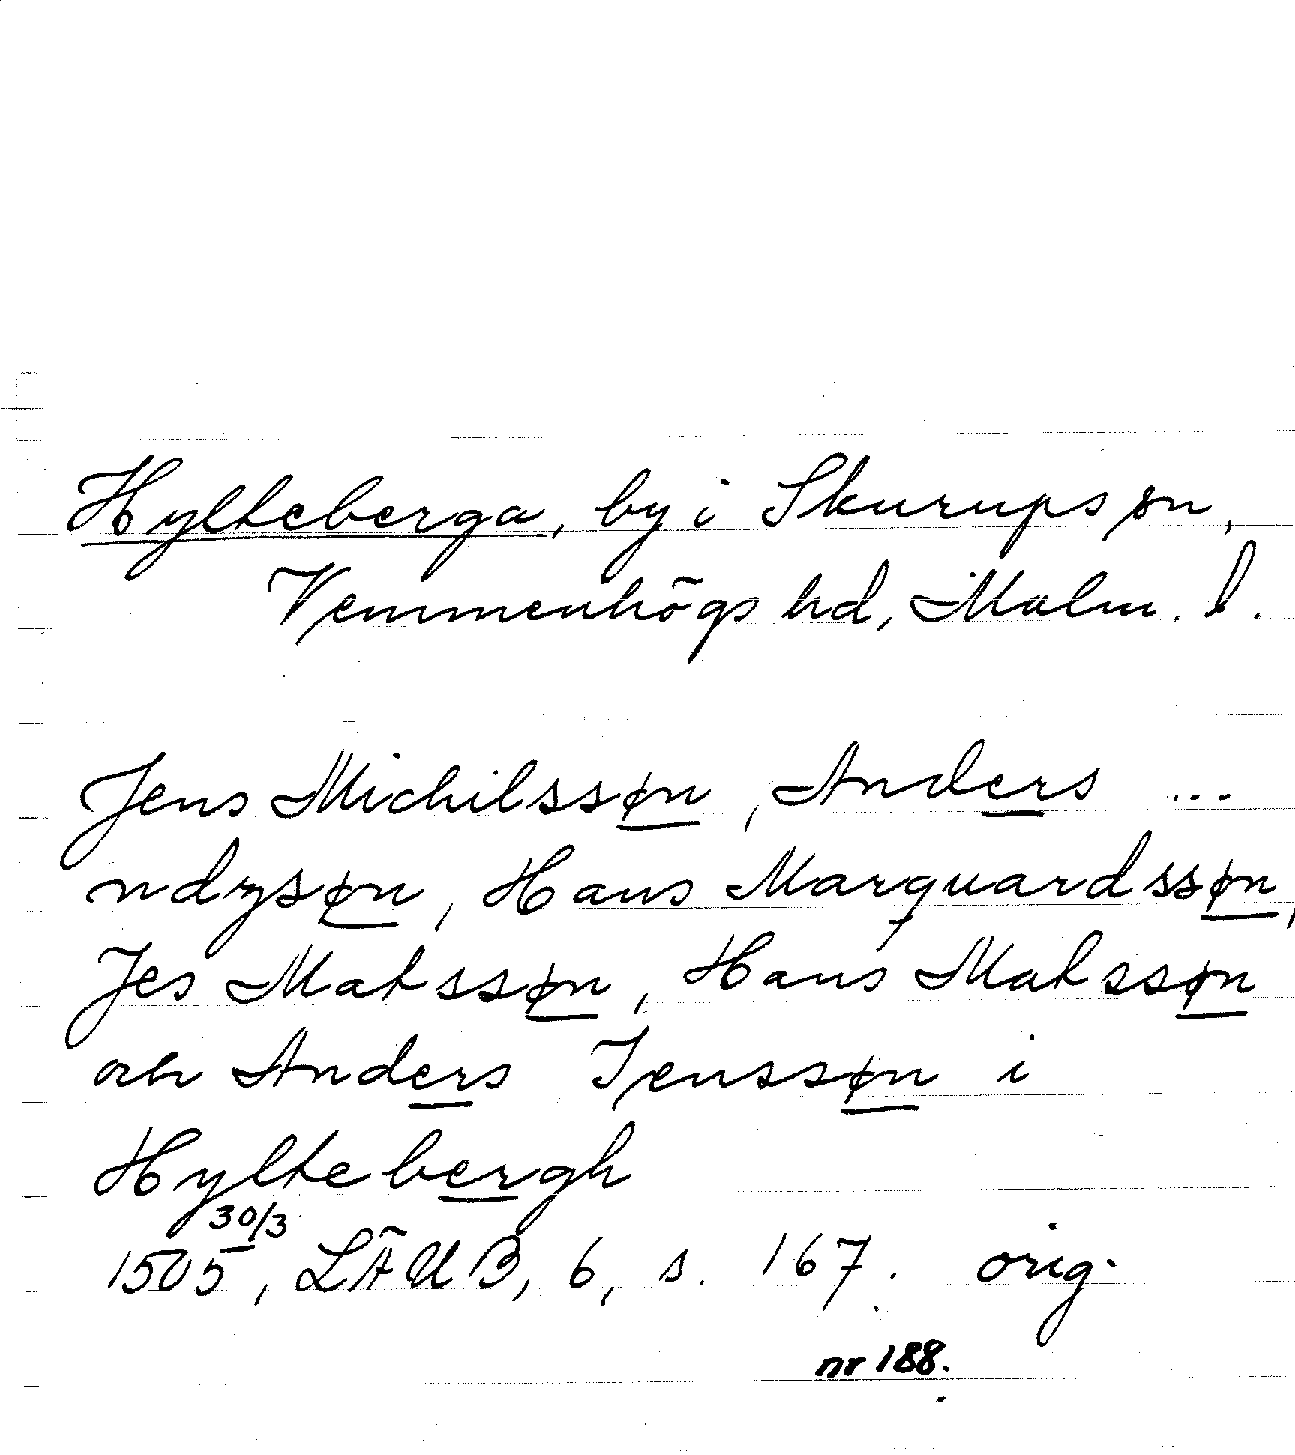 Hylteberga, by i Skurups sn,
Vemmenhögs hd, Malm. l.
Jens Michilssøn, Anders ...
ndzsøn, Hans Marquardssøn,
Jes Matssøn, Hans Matssøn
och Anders Jenssøn i
Hyltebergh
30/3
1505, LÄUB, 6, s. 167. orig.
nr 188.